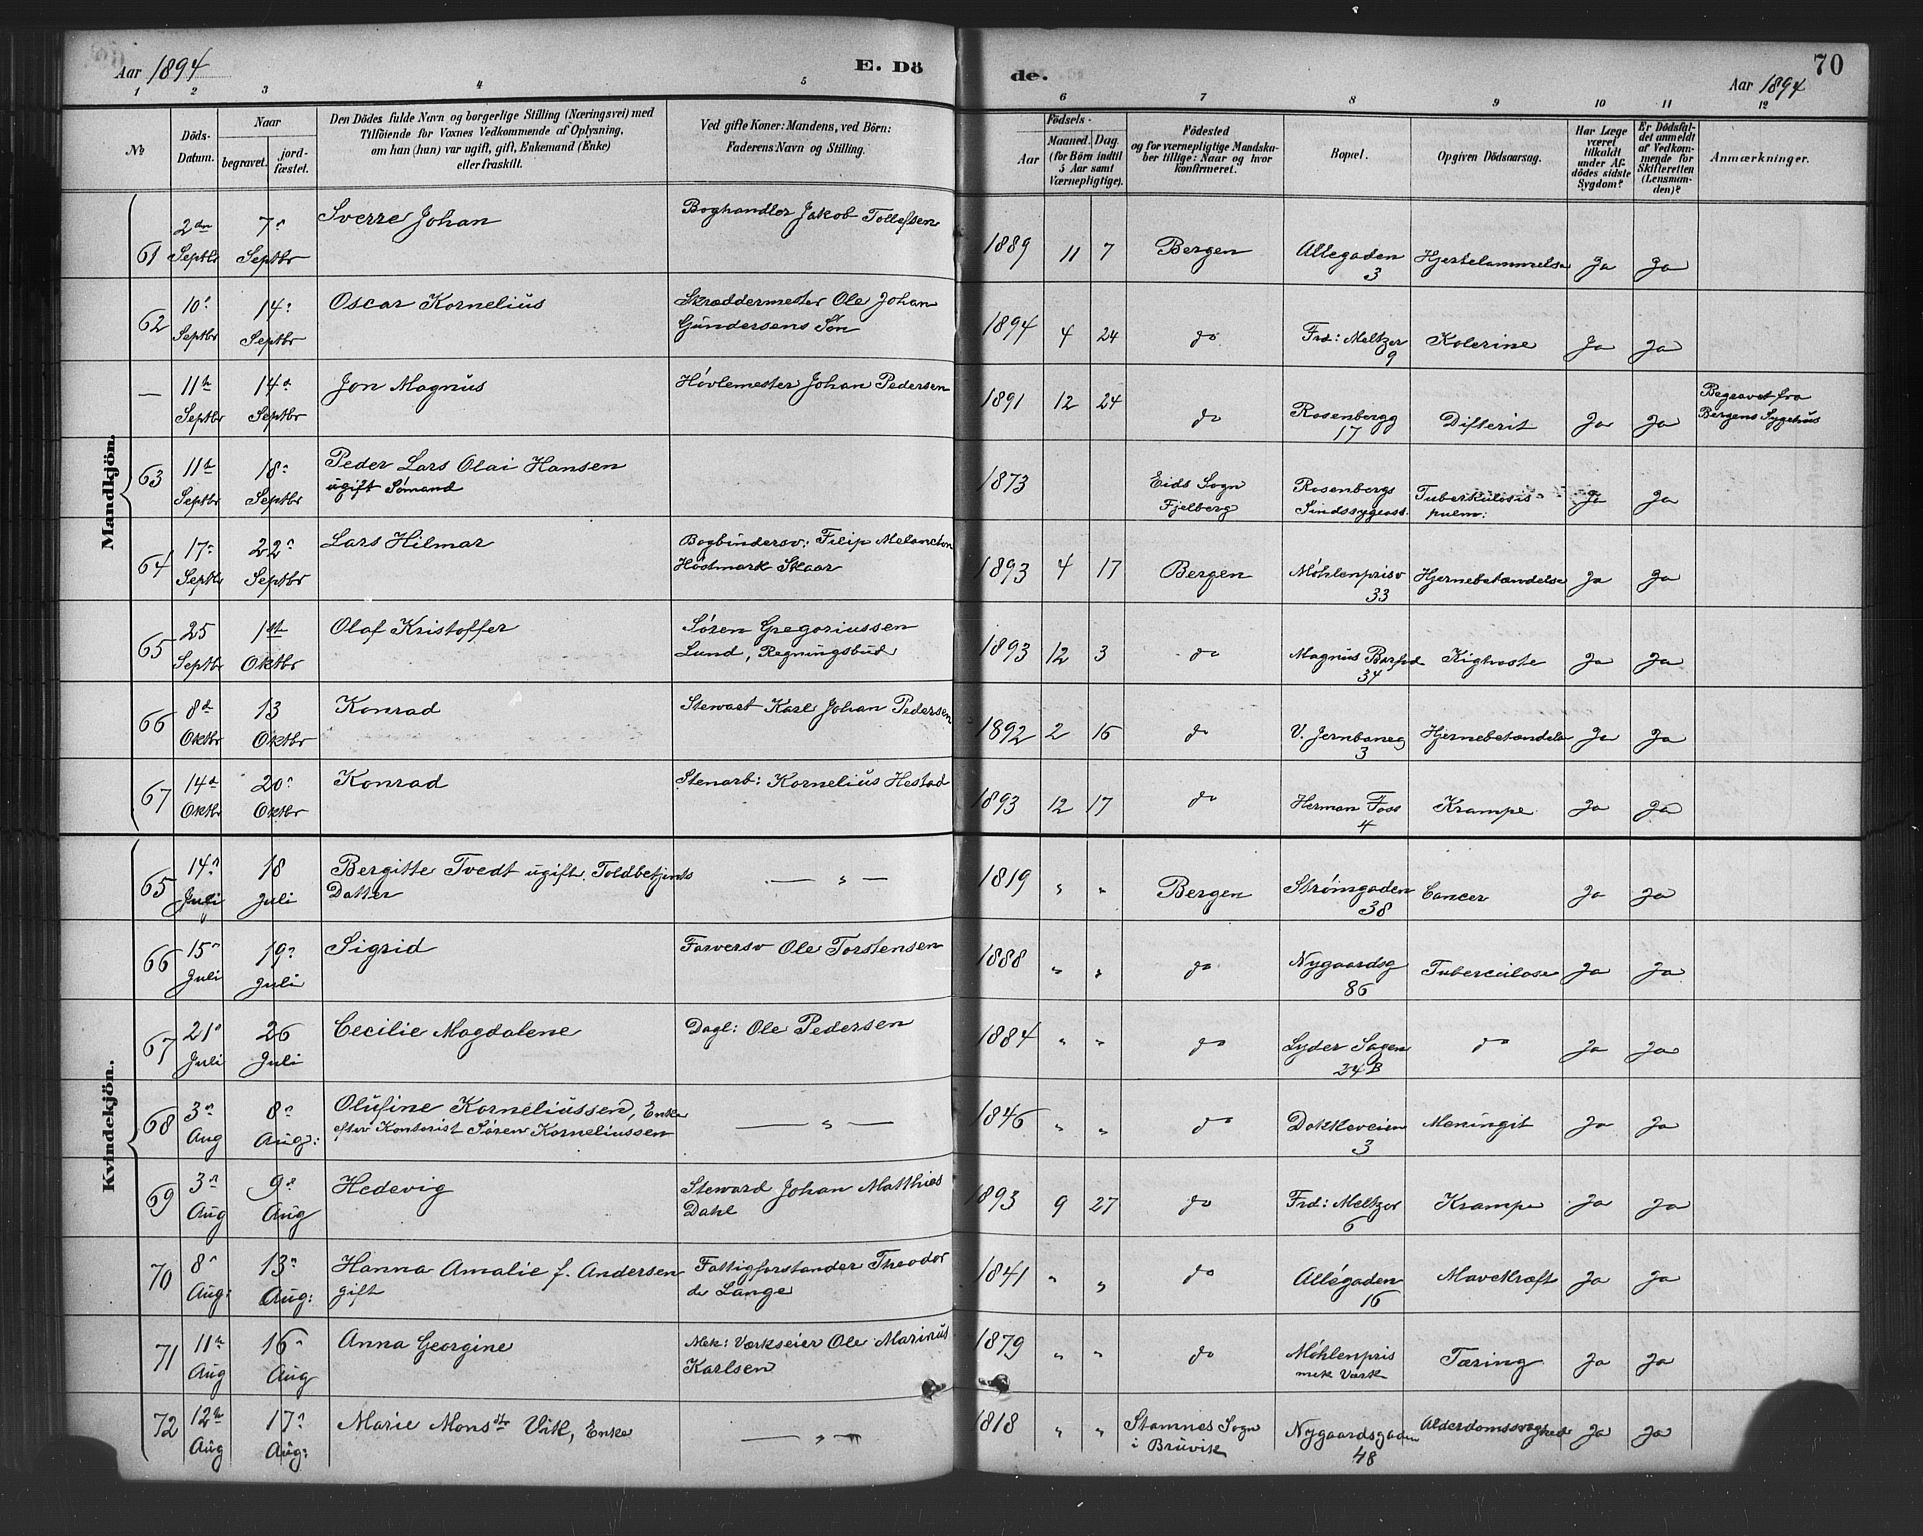 Aar 1894
E. Dö
de.
70
Aar 1894
1 2 3 4 5 6 7 8 9 10 11 12
№
Döds-
Datum.
Naar
begravet.
jord-
fæstet.
Den Dödes fulde Navn og borgerlige Stilling (Næringsvei) med
Tilföiende for Voxnes Vedkommende af Oplysning,
om han (hun) var ugift, gift, Enkemand (Enke)
eller fraskilt.
Ved gifte Koner: Mandens, ved Börn:
Faderens Navn og Stilling.
Födsels-
Aar
Maaned. Dag.
(for Börn indtil
5 Aar samt
Værnepligtige).
Födested
og for værnepligtige Mandska-
ber tillige: Naar og hvor
konfirmeret.
Bopæl.
Opgiven Dödsaarsag.
Har Læge
været
tilkaldt
under Af-
dödes sidste
Sygdom?
Er Dödsfal-
det anmeldt
af Vedkom-
mende for
Skifteretten
(Lensman-
den)?
Anmærkninger.
Mandkjön.
61 2den Septbr 7' Septbr Sverre Johan Boghandler Jakob Tollefsen 1889 11 7 Bergen Allegaden 3 Hjertelammelse Ja Ja
62 10' Septbr 14' Septbr Oscar Kornelius Skræddermester Ole Johan
Gundersens Søn 1894 4 24 do Frd: Meltzer 9 Kolerine Ja Ja
— 11te Septbr 14d Septbr Jon Magnus Høvlemester Johan Pedersen 1891 12 24 do Rosenbergg 17 Difterit Ja Ja Begravet fra
Bergens Sygehus
63 11te Septbr 18' Septbr Peder Lars Olai Hansen
ugift Sømand 1873 Eids Sogn
Fjelberg Rosenbergs
Sindssygeas. Tuberkulosis
pulm: Ja Ja
64 17' Septbr 22' Septbr Lars Hilmar Bogbindersv: Filip Melancton
Høstmark Skaar 1893 4 17 Bergen Møhlenprisv 33 Hjernebetændelse Ja Ja
65 25 Septbr 1ste Oktbr Olaf Kristoffer Søren Gregoriussen
Lund, Regningsbud 1893 12 3 do Magnus Barfod 34 Kighoste Ja Ja
66 8d Oktbr 13 Oktbr Konrad Stewart Karl Johan Pedersen 1892 2 16 do V. Jernbaneg 3 Hjernebetændelse Ja Ja
67 14d Oktbr 20' Oktbr Konrad Stenarb: Kornelius Hestad 1893 12 17 do Herman Foss 4 Krampe Ja Ja
Kvindekjön.
65 14' Juli 18 Juli Bergitte Tvedt ugift. Toldbetjents
Datter — " — 1819 " " Bergen Strømgaden 38 Cancer Ja Ja
66 15' Juli 19' Juli Sigrid Farversv Ole Torstensen 1888 " " do Nygaardsg 86 Tuberculose Ja Ja
67 21' Juli 26 Juli Cecilie Magdalene Dagl: Ole Pedersen 1884 " " do Lyder Sagen 24B do Ja Ja
68 3' Aug 8' Aug: Olufine Korneliussen, Enke
efter Kontorist Søren Korneliussen — " — 1846 " " do Dokkeveien 3 Meningit Ja Ja
69 3' Aug 9' Aug Hedevig Steward Johan Matthias
Dahl 1893 9 27 do Frd: Meltzer 6 Krampe Ja Ja
70 8' Aug: 13' Aug: Hanna Amalie f. Andersen
gift Fattigforstander Theodor
de Lange 1841 " " do Allégaden 16 Mavekræft Ja Ja
71 11te Aug 16' Aug Anna Georgine Mek: Værkseier Ole Marinus
Karlsen 1879 " " do Møhlenpris
mek Værk Tæring Ja Ja
72 12te Aug 17' Aug: Marie Monsdtr Vik, Enke — " — 1818 " " Stamnes Sogn
i Bruvik Nygaardsgaden 48 Alderdomssvaghed Ja Ja